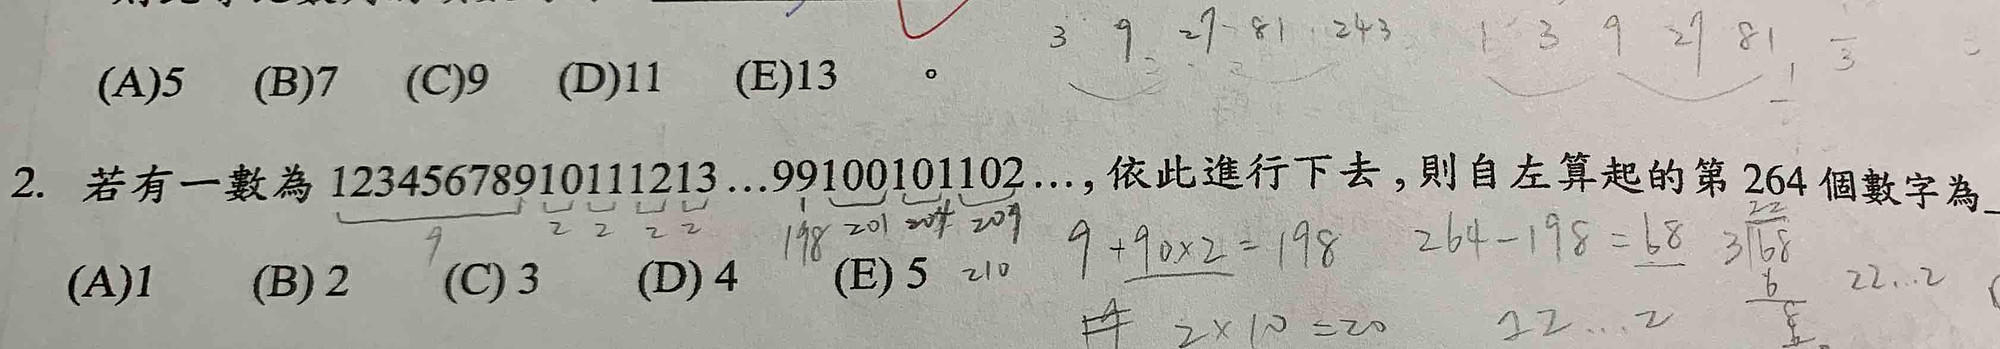 3 9 27 81 243 1 3 9 27 81
(A)5 (B)7 (C)9 (D)11 (E)13 。
2. 若有一數為 12345678910111213…99100101102…, 依此進行下去, 則自左算起的第 264 個數字為
9 2 2 2 2 198 201 204 209 9+90×2=198 264-198=68 3 68 22
(A)1 (B) 2 (C) 3 (D) 4 (E) 5 210 6 22...2
2×10=20 22...2